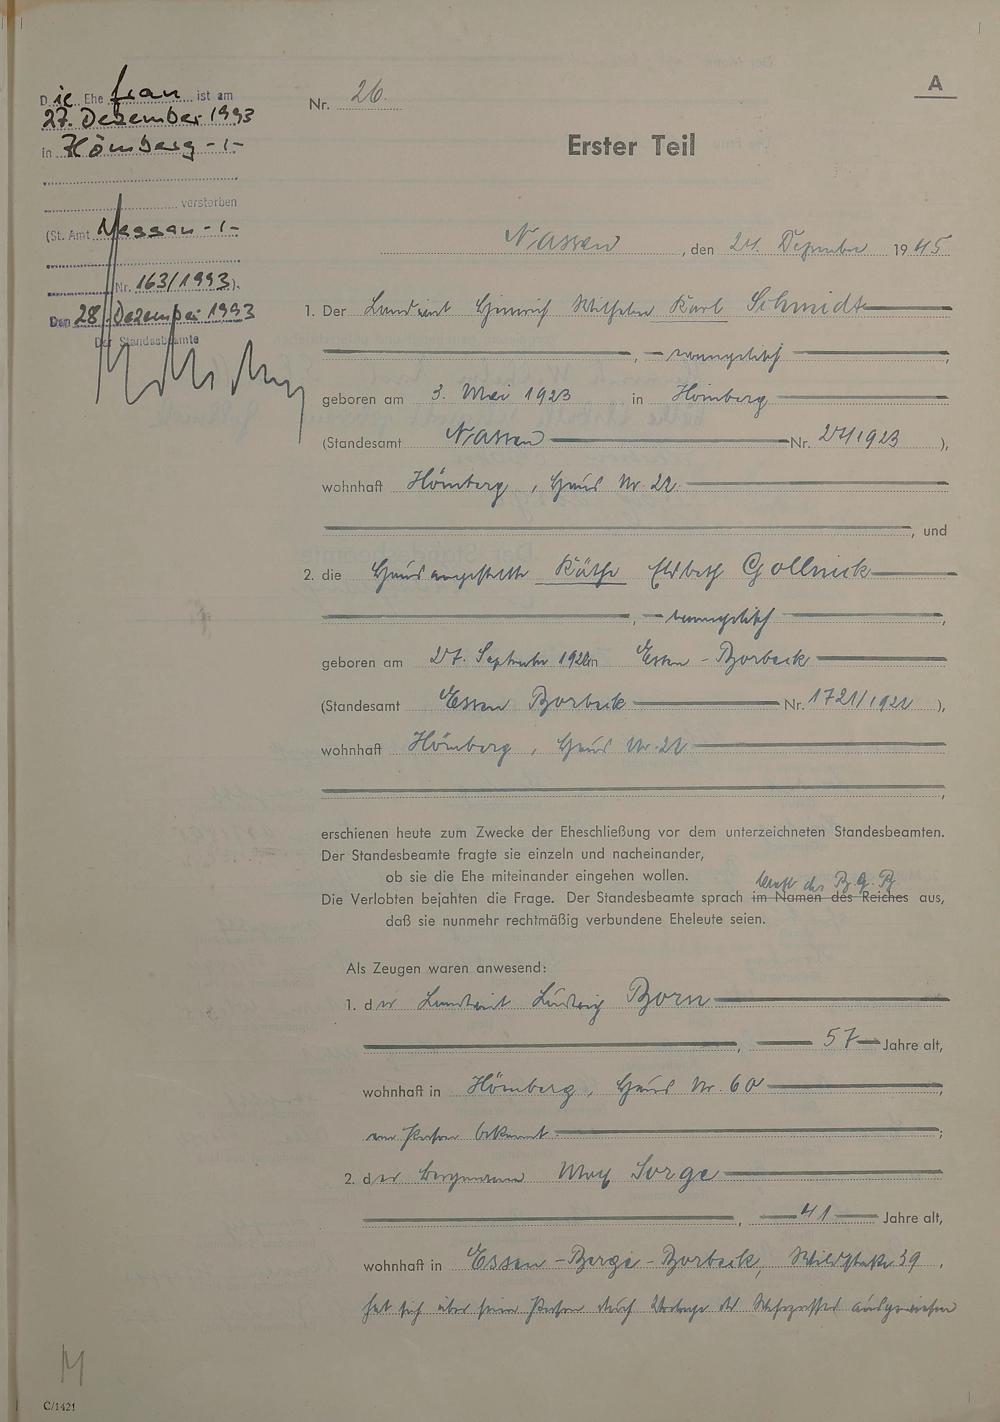 Die Ehefrau ist am
27. Dezember 1993
in Hömberg -/-
verstorben
(St. Amt Nassau -/-
Nr. 163/1993).
Den 28. Dezember 1993
Der Standesbeamte
A
Nr. 26.
Erster Teil
Nassau, den 24. Dezember 1945
1. Der Landwirt Heinrich Wilhelm Karl Schmidt
, evangelisch,
geboren am 3. Mai 1923 in Hömberg
(Standesamt Nassau Nr. 24/1923 ),
wohnhaft Hömberg, Haus Nr. 22.
, und
2. die Hausangestellte Käthe Elsbeth Gollnick
, evangelisch,
geboren am 27. September 1921 in Essen-Borbeck
(Standesamt Essen Borbeck Nr. 1721/1921 ),
wohnhaft Hömberg, Haus Nr. 22
erschienen heute zum Zwecke der Eheschließung vor dem unterzeichneten Standesbeamten.
Der Standesbeamte fragte sie einzeln und nacheinander,
ob sie die Ehe miteinander eingehen wollen.
kraft des B.G.B.
Die Verlobten bejahten die Frage. Der Standesbeamte sprach im Namen des Reiches aus,
daß sie nunmehr rechtmäßig verbundene Eheleute seien.
Als Zeugen waren anwesend:
1. der Landwirt Ludwig Born
, 57 Jahre alt,
wohnhaft in Hömberg, Haus Nr. 60,
von Person bekannt;
2. der Bergmann Max Sorge
, 41 Jahre alt,
wohnhaft in Essen-Berge-Borbeck, 39,
hat sich über seine Person durch Vorlage des Wehrpasses ausgewiesen
M
C/1421